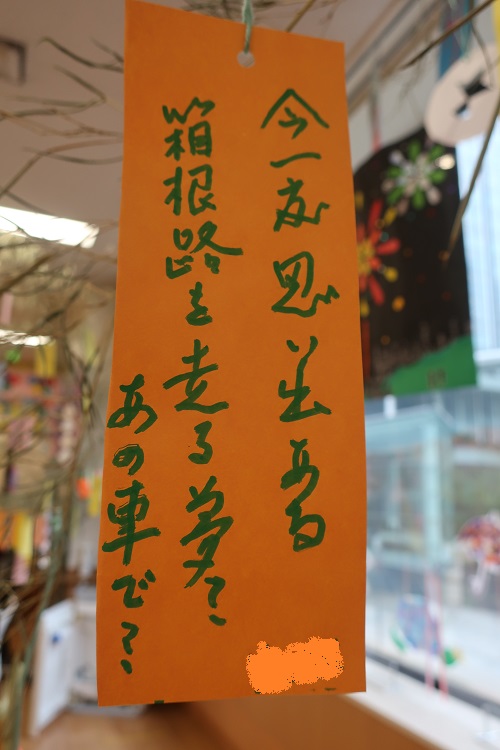 今一度思い出ある
箱根路を走る夢て、
あの車で、、